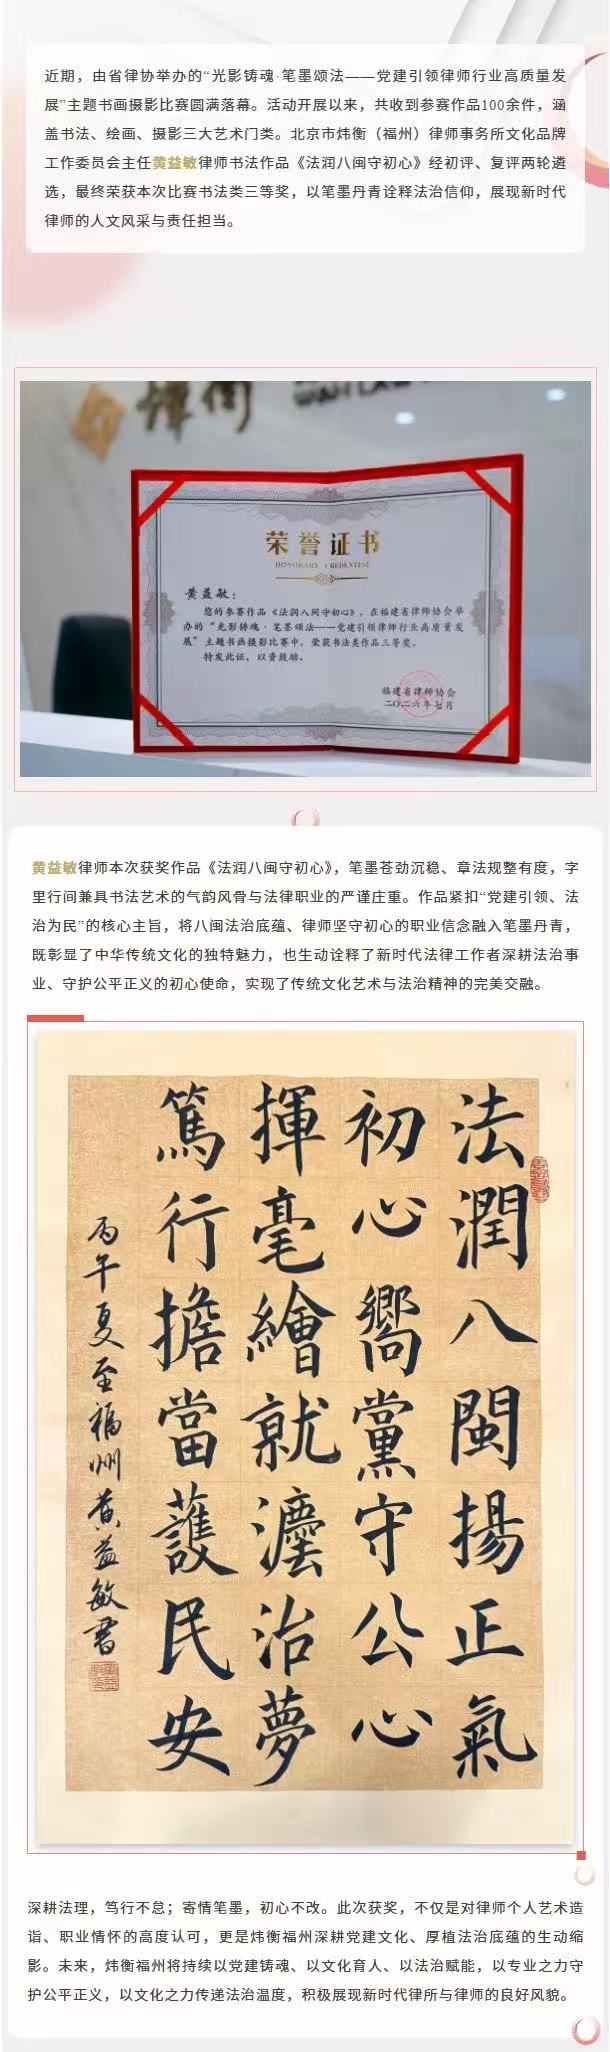 近期，由省律协举办的“光影铸魂·笔墨颂法——党建引领律师行业高质量发
展”主题书画摄影比赛圆满落幕。活动开展以来，共收到参赛作品100余件，涵
盖书法、绘画、摄影三大艺术门类。北京市炜衡（福州）律师事务所文化品牌
工作委员会主任黄益敏律师书法作品《法润八闽守初心》经初评、复评两轮遴
选，最终荣获本次比赛书法类三等奖，以笔墨丹青诠释法治信仰，展现新时代
律师的人文风采与责任担当。
荣誉证书
HONORARY CREDENTIAL
黄益敏：
您的参赛作品《法润八闽守初心》，在福建省律师协会举
办的“光影铸魂·笔墨颂法——党建引领律师行业高质量发
展”主题书画摄影比赛中，荣获书法类作品三等奖。
特发此证，以资鼓励。
福建省律师协会
二〇二六年七月
黄益敏律师本次获奖作品《法润八闽守初心》，笔墨苍劲沉稳、章法规整有度，字
里行间兼具书法艺术的气韵风骨与法律职业的严谨庄重。作品紧扣“党建引领、法
治为民”的核心主旨，将八闽法治底蕴、律师坚守初心的职业信念融入笔墨丹青，
既彰显了中华传统文化的独特魅力，也生动诠释了新时代法律工作者深耕法治事
业、守护公平正义的初心使命，实现了传统文化艺术与法治精神的完美交融。
法潤八閩揚正氣
初心嚮黨守公心
揮毫繪就灋治夢
篤行擔當護民安
丙午夏至福州黄益敏書
深耕法理，笃行不怠；寄情笔墨，初心不改。此次获奖，不仅是对律师个人艺术造
诣、职业情怀的高度认可，更是炜衡福州深耕党建文化、厚植法治底蕴的生动缩
影。未来，炜衡福州将持续以党建铸魂、以文化育人、以法治赋能，以专业之力守
护公平正义，以文化之力传递法治温度，积极展现新时代律所与律师的良好风貌。